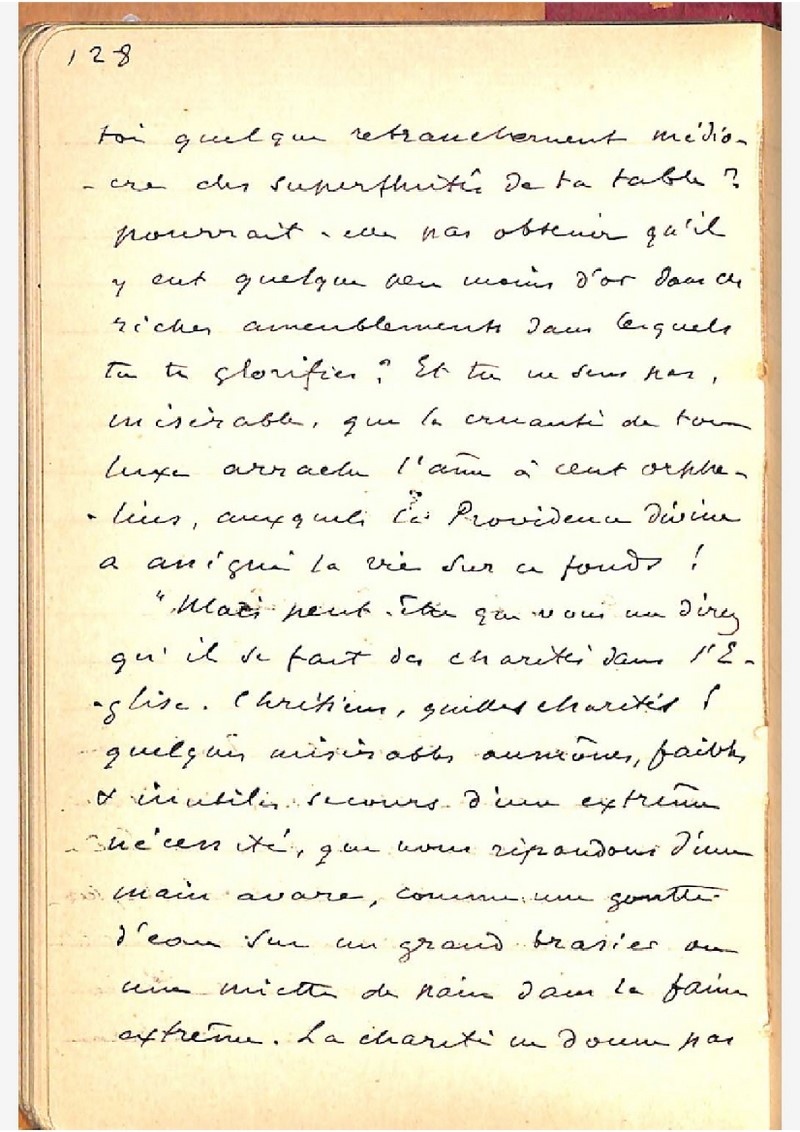 128
toi quelque retranchement médio-
- cre des superfluités de ta table ?
pourrait-elle pas obtenir qu'il
y eut quelque peu moins d'or dans ces
riches ameublements dans lesquels
tu te glorifies ? Et tu ne sens pas,
misérable, que la cruauté de ton
luxe arrache l'âme à cent orphe-
- lins, auxquels la Providence divine
a assigné la vie sur ce fonds !
"Mais peut-être que vous me direz
qu'il se fait des charités dans l'E-
- glise. Chrétiens, quelles charités !
quelques misérables aumônes, faibles
& inutiles secours d'une extrême
nécessité, que nous répandons d'une
main avare, comme une goutte
d'eau sur un grand brasier ou
une miette de pain dans la faim
extrême. La charité ne donne pas